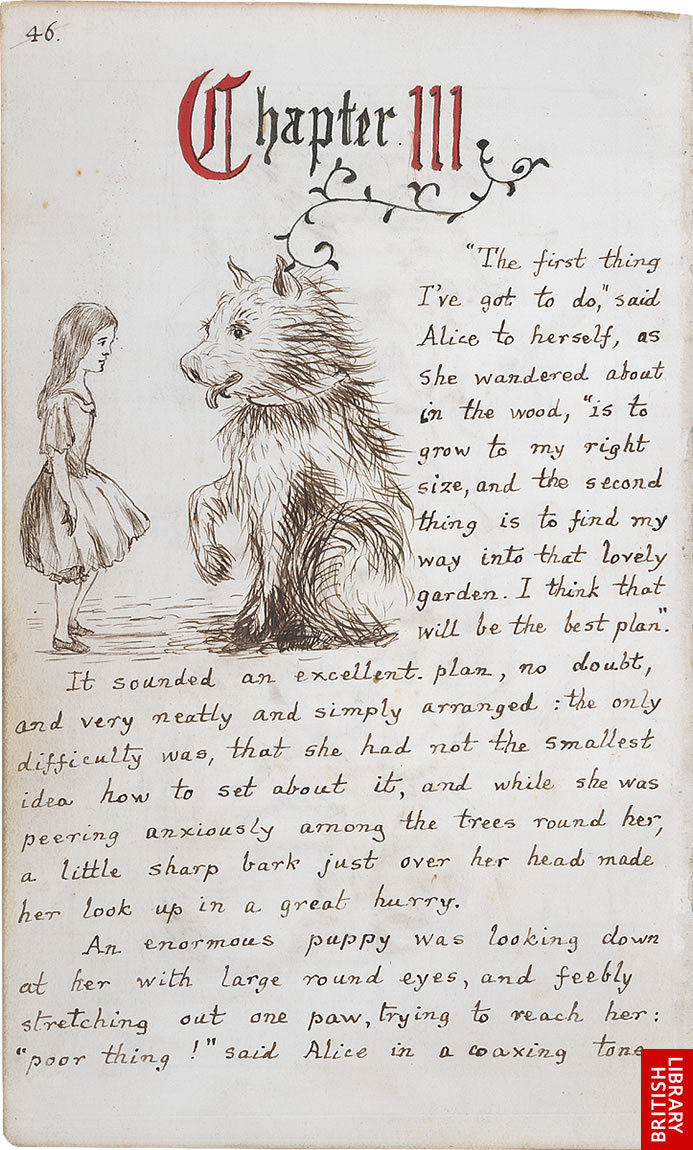 46.
Chapter III
"The first thing
I've got to do," said
Alice to herself, as
she wandered about
in the wood, "is to
grow to my right
size, and the second
thing is to find my
way into that lovely
garden. I think that
will be the best plan".
It sounded an excellent plan, no doubt,
and very neatly and simply arranged : the only
difficulty was, that she had not the smallest
idea how to set about it, and while she was
peering anxiously among the trees round her,
a little sharp bark just over her head made
her look up in a great hurry.
An enormous puppy was looking down
at her with large round eyes, and feebly
stretching out one paw, trying to reach her :
"poor thing !" said Alice in a coaxing tone
BRITISH
LIBRARY